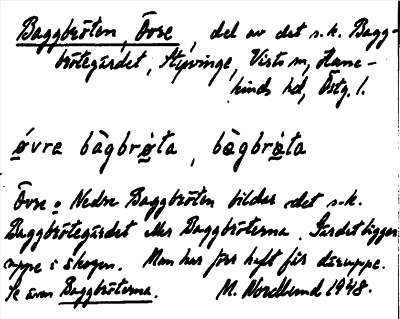 Baggbröten, Övre, del av det s.k. Bagg-
brötegärdet, Stjärvinge, Vists sn, Hane-
kinds hd, Östg. l.
øvrɐ bàgbrøta, bàgbrøta
Övre o Nedre Baggbröten bildar det s.k.
Baggbrötegärdet eller Baggbröterna. Gärdet ligger
uppe i skogen. Man har förr haft får däruppe.
Se även Baggbröterna. M. Nordlund 1948.